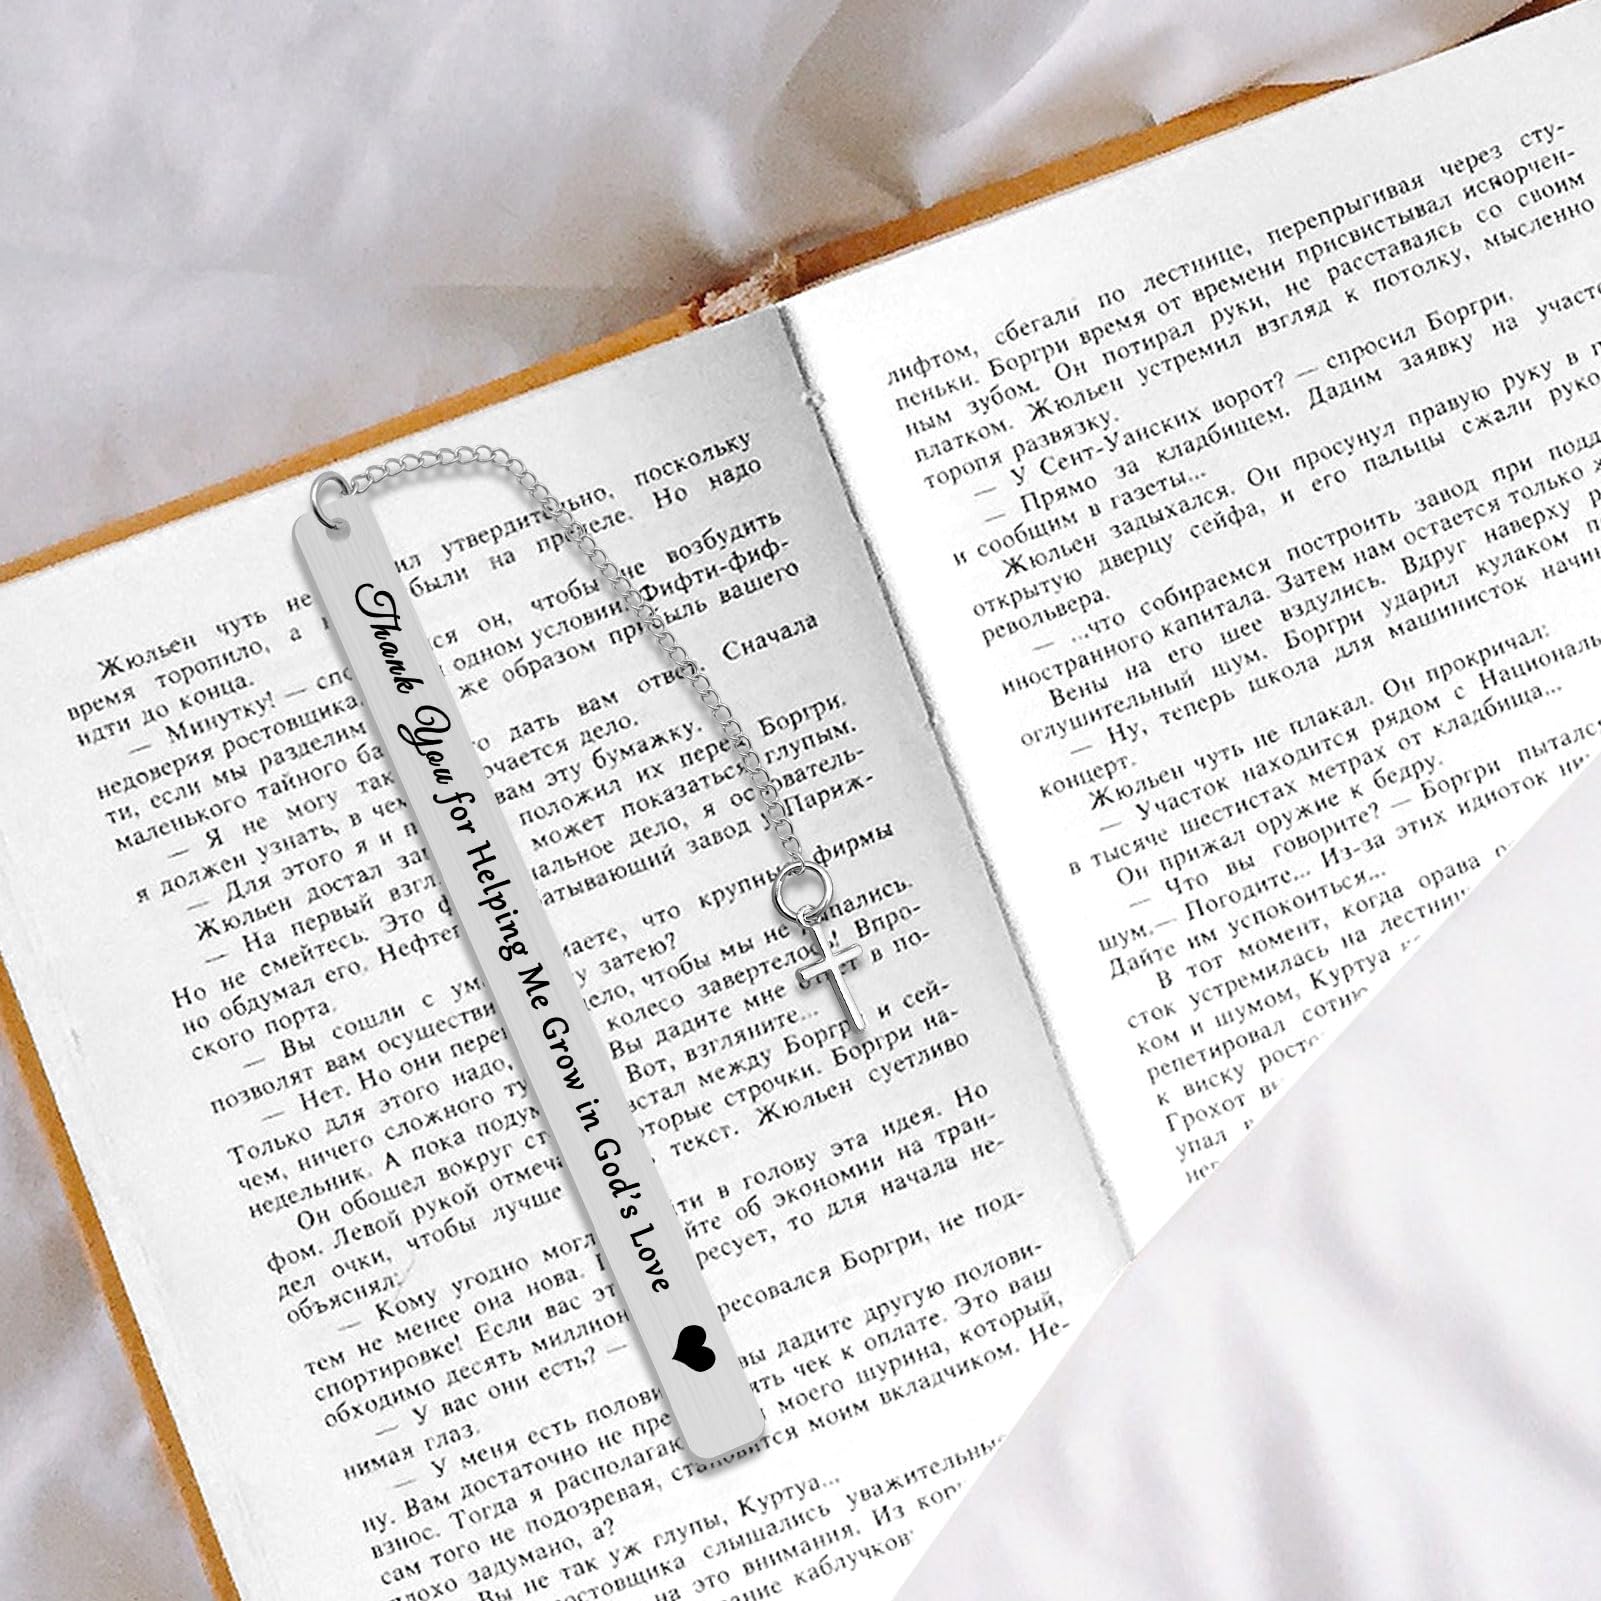 Thank You for Helping Me Grow in God's Love
ил утвердительно, поскольку
были на пределе. Но надо
Жюльен чуть не
время торопило, а
идти до конца.
— Минутку! —
ся он, чтобы не возбудить
недоверия ростовщика.
одном условии. Фифти-фиф-
ти, если мы разделим
же образом прибыль вашего
маленького тайного
— Я не могу
дать вам ответ. Сначала
я должен узнать, в
ючается дело.
— Для этого я и
вам эту бумажку.
Жюльен достал
положил их перед Боргри.
— На первый
может показаться глупым.
Но не смейтесь. Это
нальное дело, я основатель-
но обдумал его.
атывающий завод у Париж-
ского порта.
— Вы сошли с
маете, что крупные фирмы
позволят вам
у затею?
— Нет. Но они
дело, чтобы мы не
Только для этого надо,
колесо завертелось! Впро-
чем, ничего сложного
Вы дадите мне ответ в по-
недельник. А пока
Вот, взгляните...
Он обошел вокруг
встал между Боргри и сей-
фом. Левой рукой
оторые строчки. Боргри на-
дел очки, чтобы лучше
текст. Жюльен суетливо
объяснял:
— Кому угодно
ти в голову эта идея. Но
тем не менее она нова.
йте об экономии на тран-
спортировке! Если вас
ресует, то для начала не-
обходимо десять
— У вас они есть? —
ресовался Боргри, не под-
нимая глаз.
— У меня есть
вы дадите другую полови-
ну. Вам достаточно не
ять чек к оплате. Это ваш
взнос. Тогда я
моего шурина, который,
сам того не подозревая, становится моим вкладчиком. Не-
плохо задумано, а?
Вы не так уж глупы, Куртуа...
остовщика слышались уважительные
на это внимания. Из
ание каблучков
лифтом, сбегали по лестнице, перепрыгивая через сту-
пеньки. Боргри время от времени присвистывал испорчен-
ным зубом. Он потирал руки, не расставаясь со своим
платком. Жюльен устремил взгляд к потолку, мысленно
торопя развязку.
— У Сент-Уанских ворот? — спросил Боргри.
— Прямо за кладбищем. Дадим заявку на
и сообщим в газеты...
Жюльен задыхался. Он просунул правую руку в
открытую дверцу сейфа, и его пальцы сжали
револьвера.
— ...что собираемся построить завод при
иностранного капитала. Затем нам остается только
Вены на его шее вздулись. Вдруг наверху
оглушительный шум. Боргри ударил кулаком
— Ну, теперь школа для машинисток
концерт.
Жюльен чуть не плакал. Он прокричал:
— Участок находится рядом с
в тысяче шестистах метрах от кладбища...
Он прижал оружие к бедру.
— Что вы говорите? — Боргри
шум. — Погодите... Из-за этих идиоток
Дайте им успокоиться...
В тот момент, когда орава
сток устремилась на
ком и шумом, Куртуа
репетировал
к виску
Грохот
упал